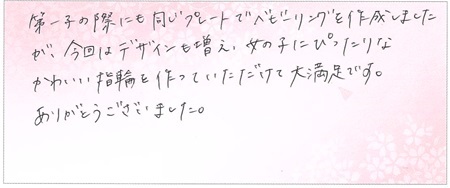 第一子の際にも同じプレートでベビーリングを作成しました
が、今回はデザインも増え、女の子にぴったりな
かわいい指輪を作っていただけて大満足です。
ありがとうございました。